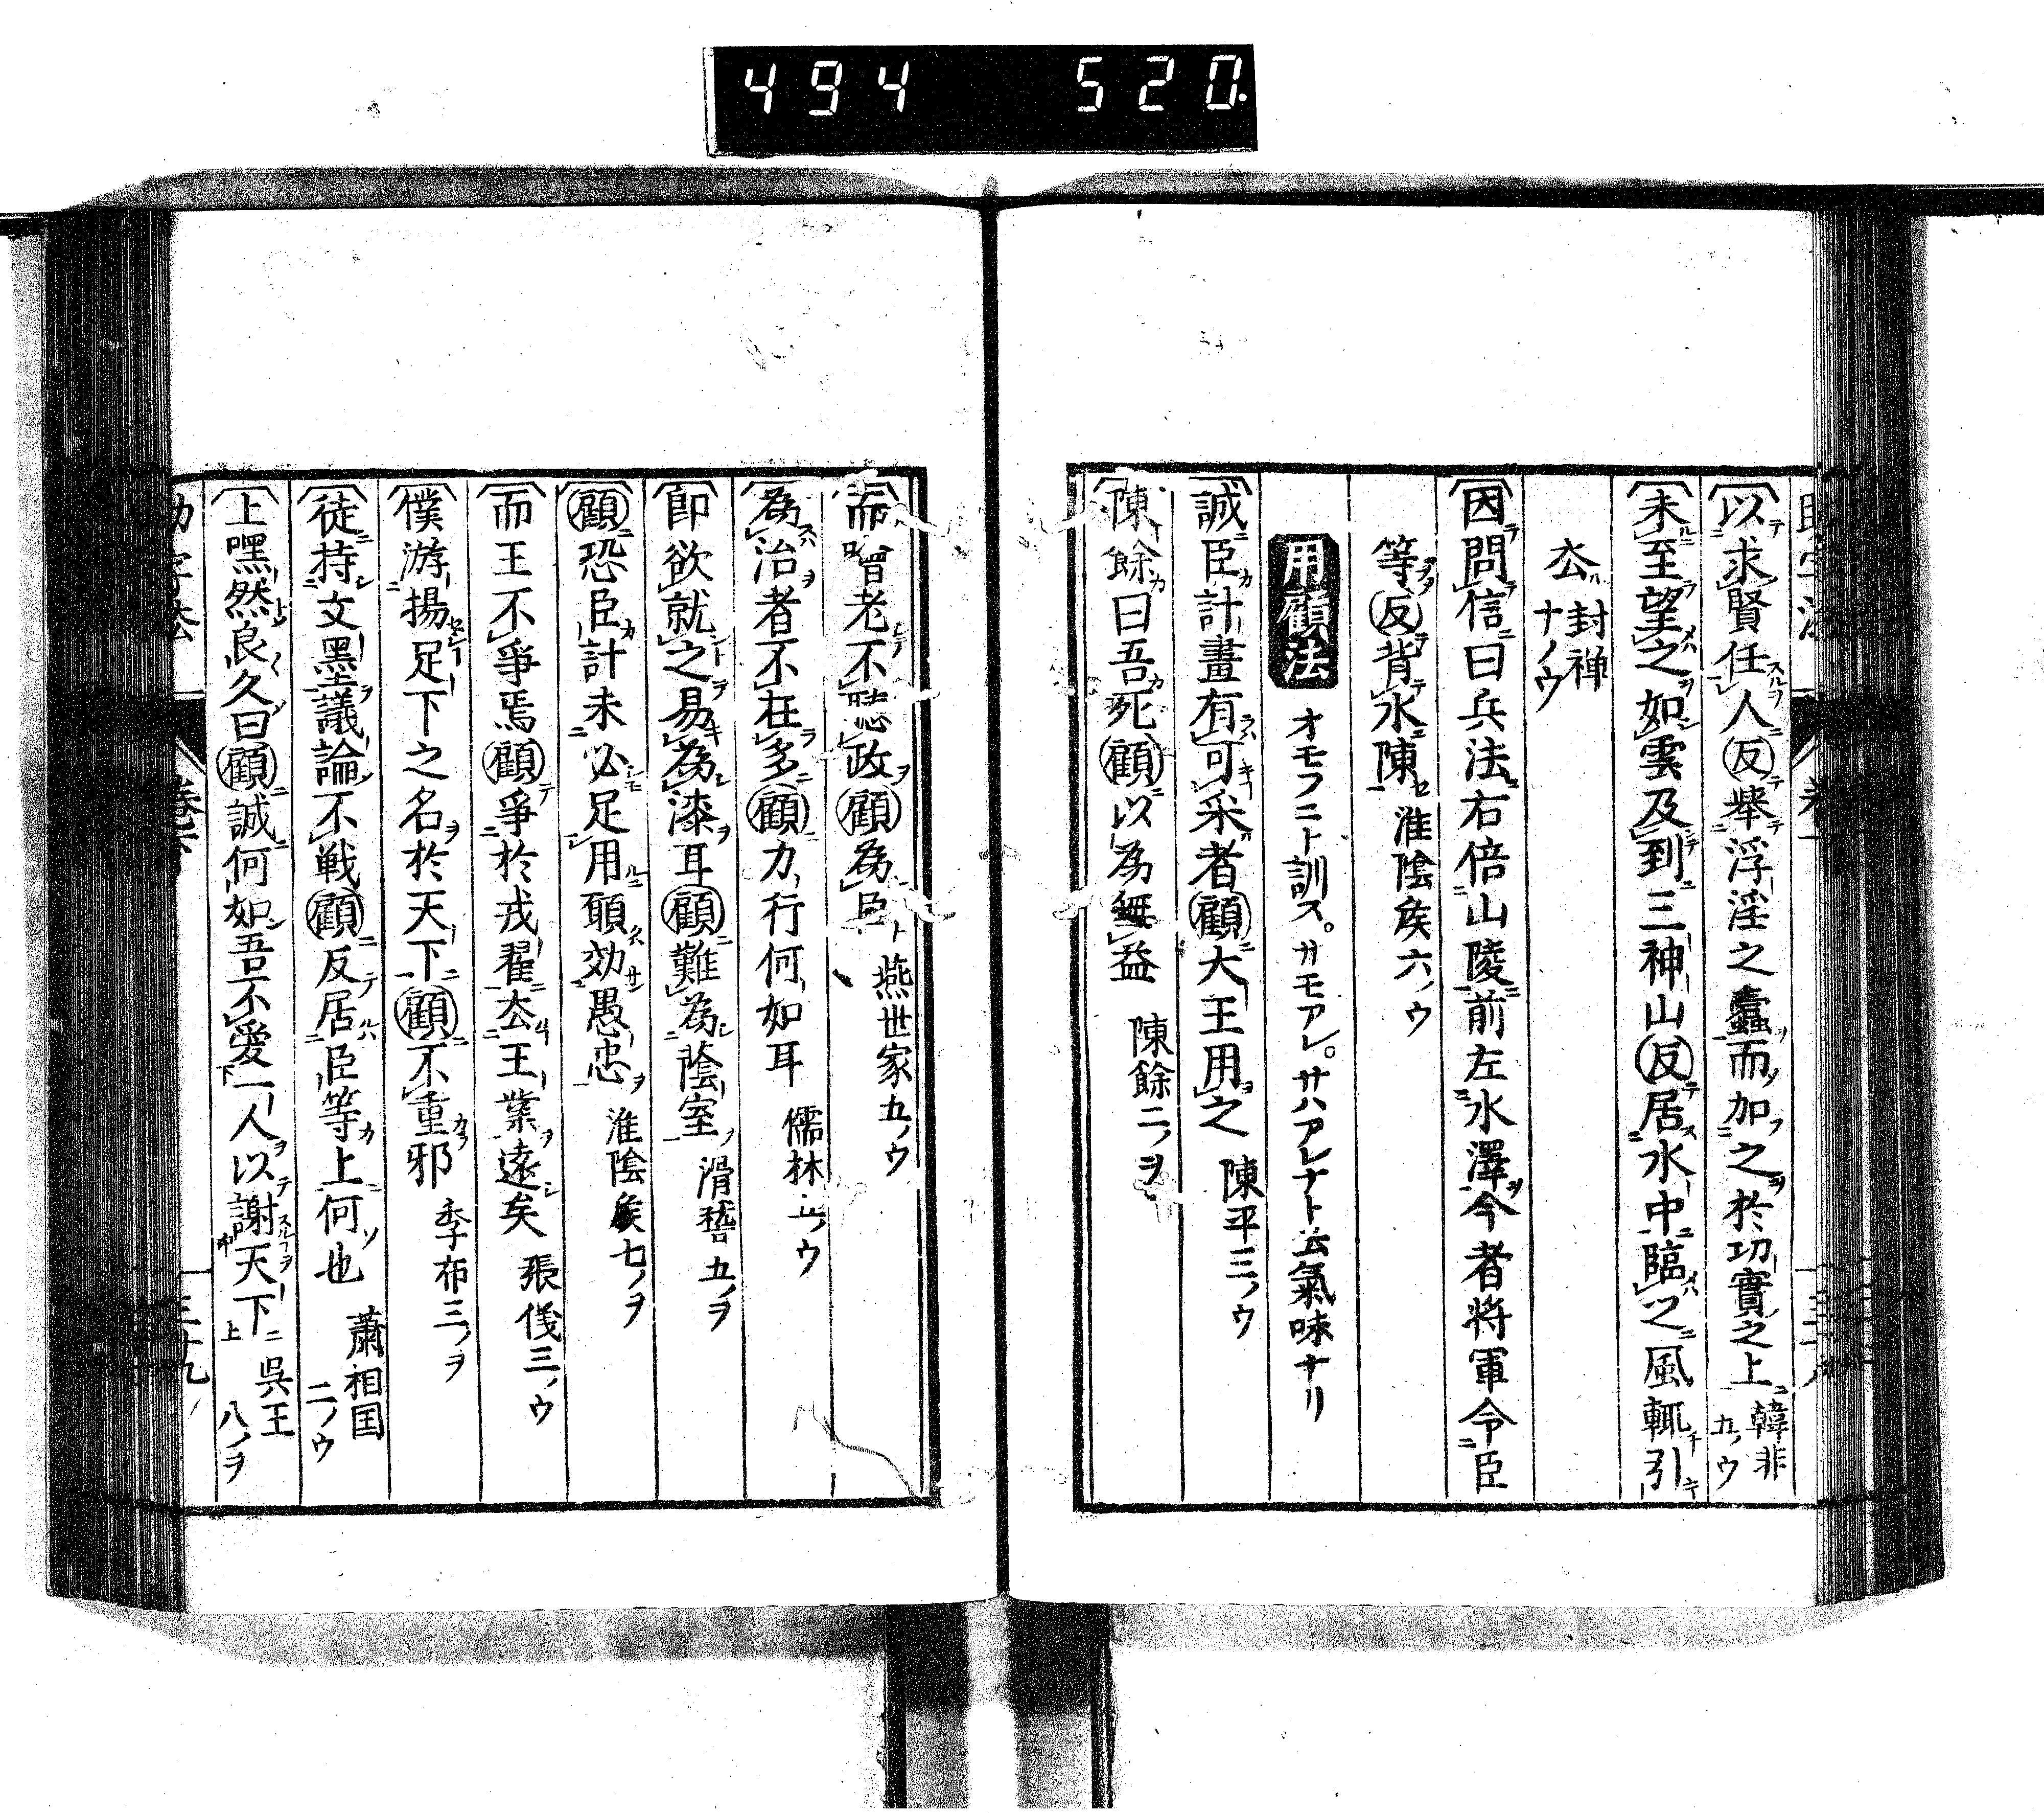 494 520
以求賢任人反舉浮淫之蠹而加之於功實之上 韓非五ノウ
未至望之如雲及到三神山反居水中臨之風輒引
去 封禅十ノウ
因問信曰兵法右倍山陵前左水澤今者将軍令臣
等反背水陳 淮陰矦六ノウ
用顧法 オモフニト訓ス。サモアレ。サハアレナト云氣味ナリ
誠臣計畫有可采者顧大王用之 陳平三ノウ
陳餘曰吾死顧以為無益 陳餘二ノヲ
而噲老不聽政顧為臣 燕世家五ノウ
為治者不在多顧力行何如耳 儒林五ノウ
即欲就之易為漆耳顧難為蔭室 滑稽五ノヲ
顧恐臣計未必足用願効愚忠 淮陰矦七ノヲ
而王不爭焉顧爭於戎翟去王業遠矣 張儀三ノウ
僕游揚足下之名於天下顧不重邪 季布三ノヲ
徒持文墨議論不戦顧反居臣等上何也 蕭相国二ノウ
上嘿然良久曰顧誠何如吾不愛一人以謝天下 吳王八ノヲ